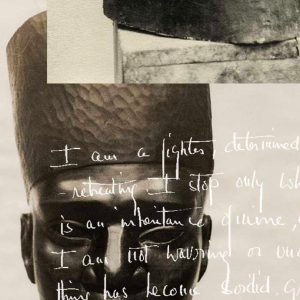 I am a fighter, determined
- retreating I stop only wh
is an inheritance divine,
I am not wavering or un
thing has become sordid. G